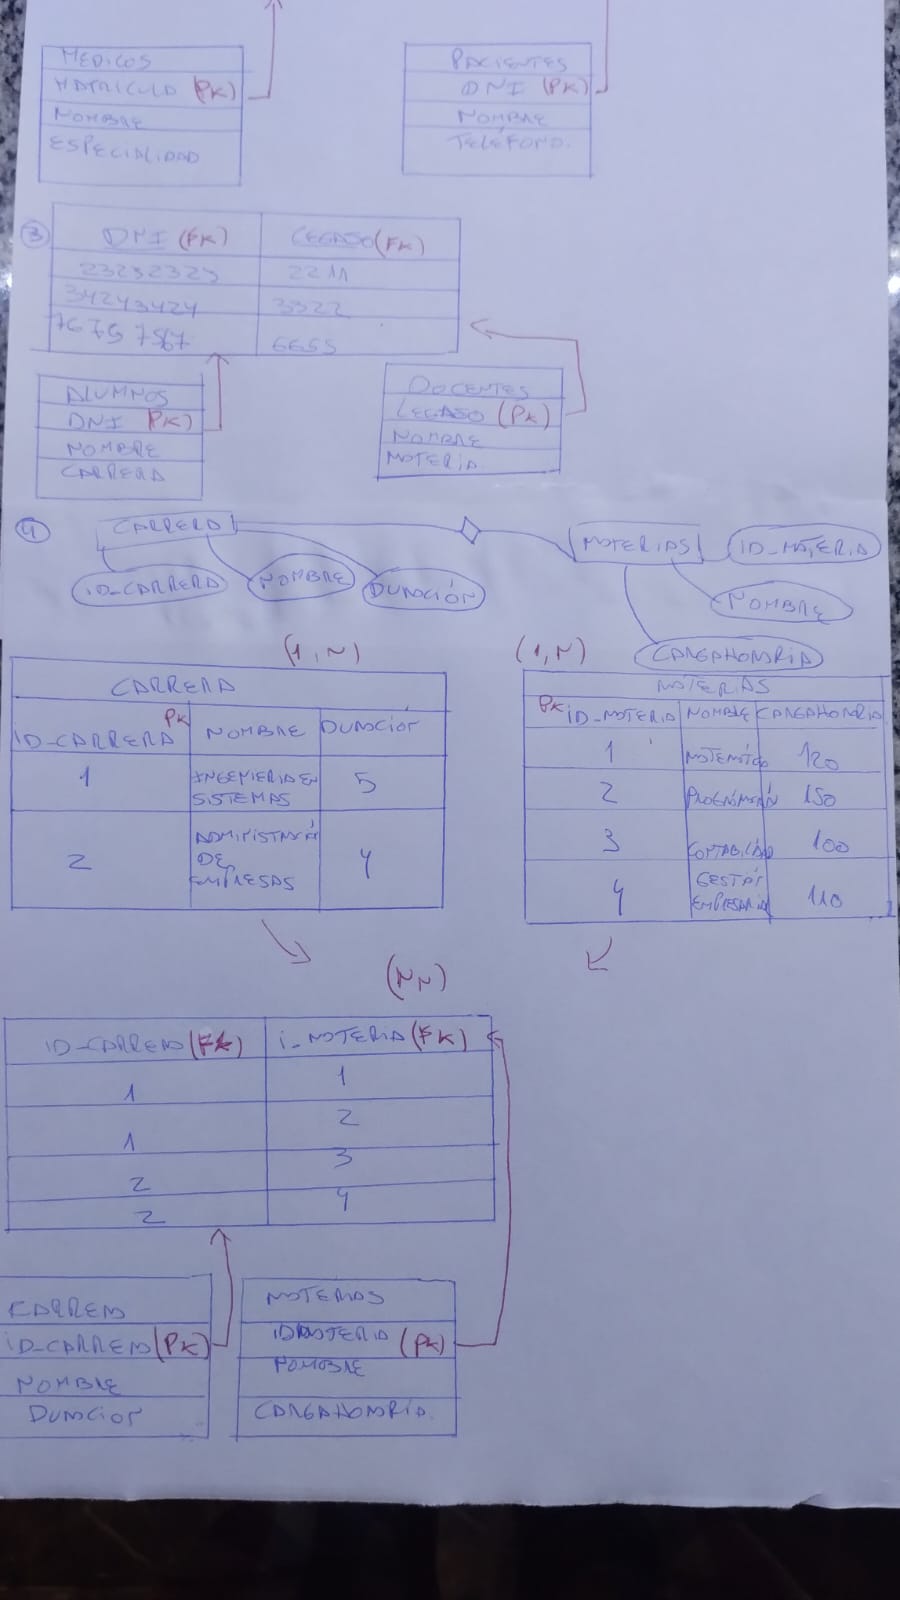 MEDICOS
MATRICULA (PK)
NOMBRE
ESPECIALIDAD
PACIENTES
DNI (PK)
NOMBRE
TELÉFONO.
3
DNI (FK) LEGAJO (FK)
23232323 2211
34243424 3322
6655
ALUMNOS
DNI (PK)
NOMBRE
CARRERA
DOCENTES
LEGAJO (PK)
NOMBRE
MATERIA
4
CARRERA
MATERIAS ID_MATERIA
ID_CARRERA NOMBRE DURACIÓN
NOMBRE
CARGAHORARIA
(1,N) (1,N)
CARRERA
PK
ID_CARRERA NOMBRE DURACIÓN
1 INGENIERIA EN SISTEMAS 5
2 ADMINISTRACIÓN DE EMPRESAS 4
MATERIAS
PK ID_MATERIA NOMBRE CARGAHORARIA
1 MATEMÁTICA 120
2 PROGRAMACIÓN 150
3 CONTABILIDAD 100
4 GESTIÓN EMPRESARIAL 110
(N,N)
ID_CARRERA (FK) I_MATERIA (FK)
1 1
1 2
2 3
2 4
CARRERA
ID_CARRERA (PK)
NOMBRE
DURACIÓN
MATERIAS
IDMATERIA (PK)
NOMBRE
CARGAHORARIA.